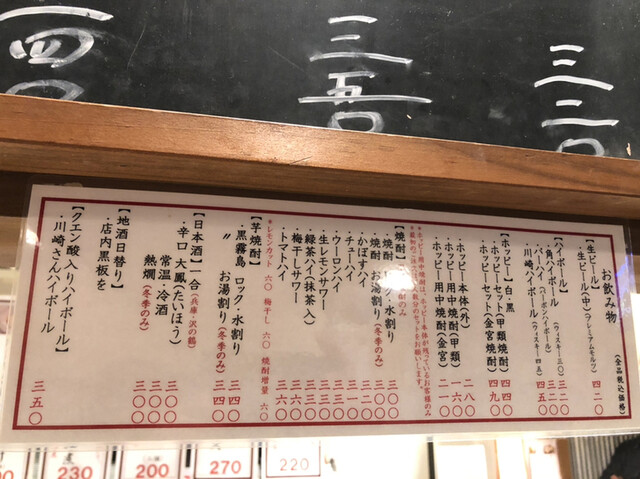 三三〇
三五〇
一四〇
お飲み物
(全品税込価格)
【生ビール】
・生ビール(中)(プレミアムモルツ) 四二〇
【ハイボール】
・角ハイボール(ウィスキー三〇) 三二〇
・川崎ハイボール(ウィスキー四五) 四五〇
【ホッピー】白・黒
・ホッピーセット(甲類焼酎) 四四〇
・ホッピーセット(金宮焼酎) 四九〇
・ホッピー本体(外) 二八〇
・ホッピー用中焼酎(甲類) 一六〇
・ホッピー用中焼酎(金宮) 二一〇
*ホッピー用中焼酎は、ホッピー本体が残っているお客様のみ
【焼酎】
・焼酎 お湯割り(冬季のみ) 三〇〇
・かぼすハイ
・チューハイ
・ウーロンハイ
・生レモンサワー
・緑茶ハイ(抹茶入)
・梅干しサワー
・トマトハイ 三六〇
*レモンカット 六〇 梅干し 六〇 焼酎増量 六〇
【芋焼酎】
・黒霧島 ロック・水割り 三四〇
〃 お湯割り(冬季のみ) 三四〇
【日本酒】一合(兵庫・沢の鶴)
・辛口 大鳳(たいほう)
常温・冷酒 三〇〇
熱燗(冬季のみ) 三〇〇
【地酒日替り】
・店内黒板を
【クエン酸入りハイボール】
・川崎さんハイボール 三五〇
230
200
270
220